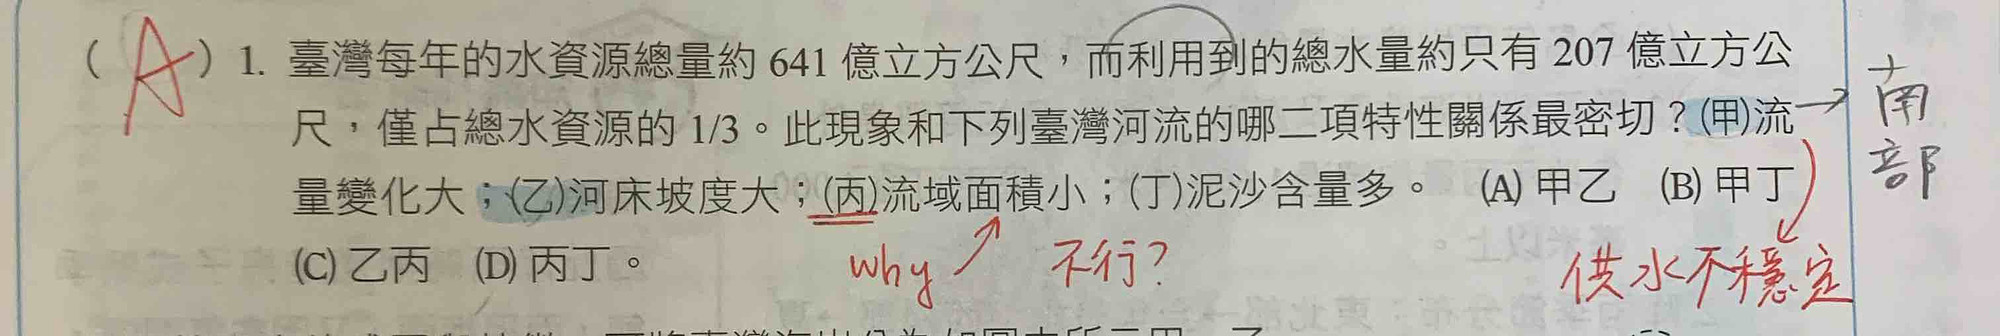 ( A ) 1. 臺灣每年的水資源總量約 641 億立方公尺，而利用到的總水量約只有 207 億立方公
尺，僅占總水資源的 1/3。此現象和下列臺灣河流的哪二項特性關係最密切？(甲)流
量變化大；(乙)河床坡度大；(丙)流域面積小；(丁)泥沙含量多。 (A) 甲乙 (B) 甲丁
(C) 乙丙 (D) 丙丁。
→ 南部
why 不行?
供水不穩定